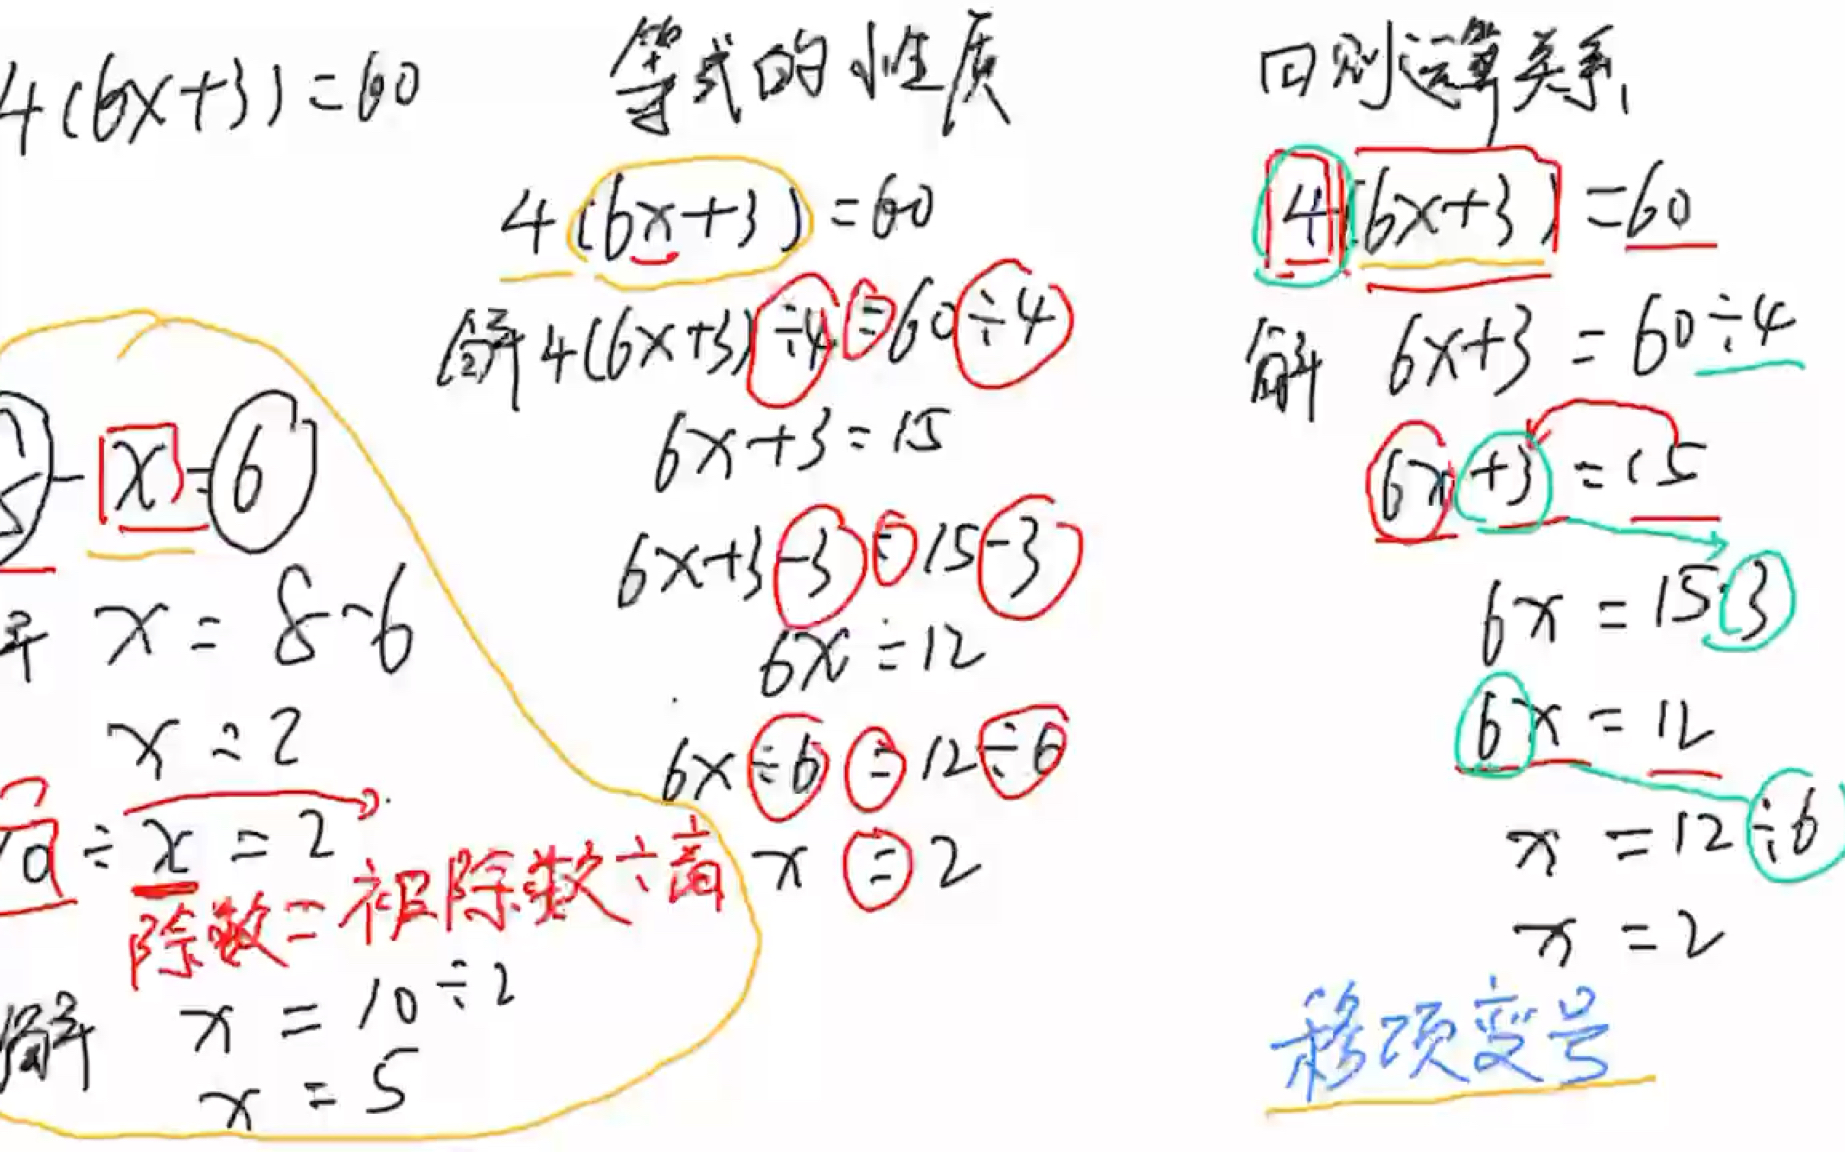 4(6x+3)=60
- x = 6
x = 8-6
x = 2
÷ x = 2
除数=被除数÷商
解 x = 10÷2
x = 5
等式的性质
4(6x+3)=60
解 4(6x+3)÷4=60÷4
6x+3=15
6x+3-3=15-3
6x=12
6x÷6=12÷6
x=2
四则运算关系
4(6x+3)=60
解 6x+3=60÷4
6x+3=15
6x=15-3
6x=12
x=12÷6
x=2
移项变号